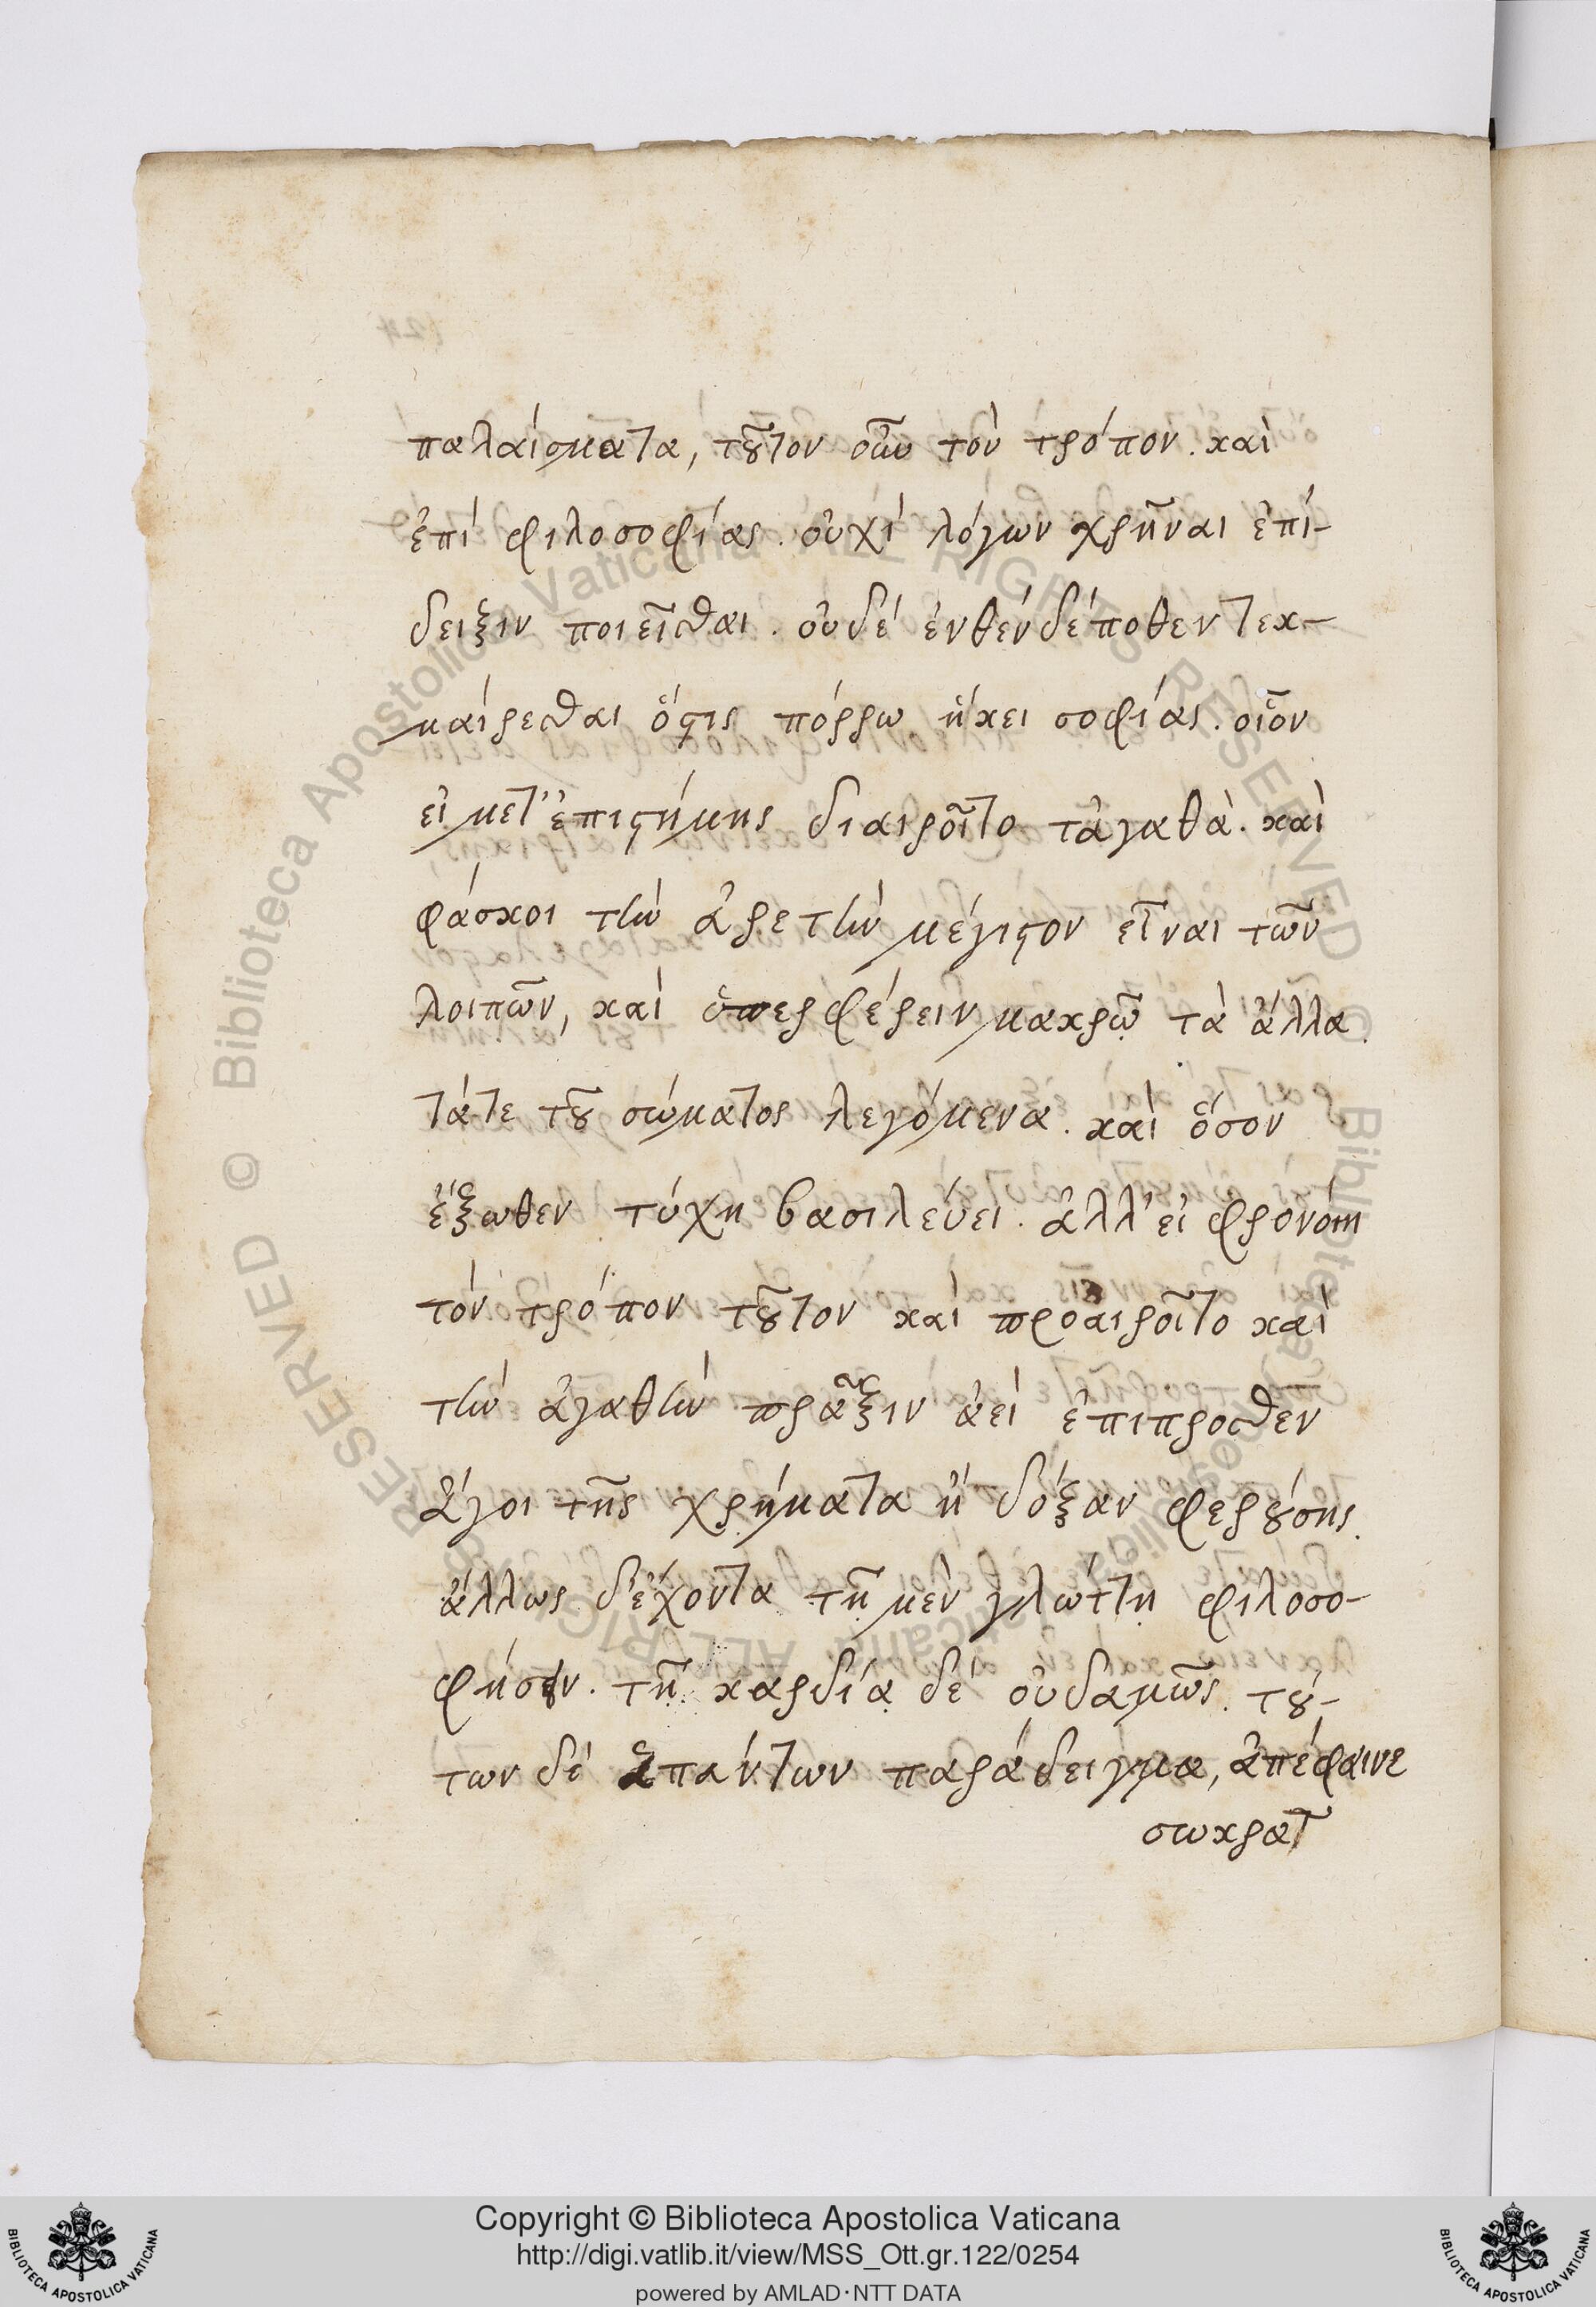 παλαίσματα, τοῦτον οὖν τὸν τρόπον. καὶ
ἐπὶ φιλοσοφίας. οὐχὶ λόγων χρῆναι ἐπί-
δειξιν ποιεῖσθαι. οὐδὲ ἐνθένδέποθεν τεκ-
μαίρεσθαι ὅστις πόρρω ἥκει σοφίας. οἷον
εἰ μετ' ἐπιστήμης διαιροῖτο τἀγαθὰ. καὶ
φάσκοι τὴν ἀρετὴν μέγιστον εἶναι τῶν
λοιπῶν, καὶ ὑπερφέρειν μακρῷ τὰ ἄλλα.
τάτε τοῦ σώματος λεγόμενα. καὶ ὅσον
ἔξωθεν τύχη βασιλεύει. ἀλλ' εἰ φρονοίη
τὸν τρόπον τοῦτον καὶ προαιροῖτο καὶ
τὴν ἀγαθὴν πρᾶξιν ἀεὶ ἐπιπροσθεν
ἄγοι τῆς χρήματα ἢ δόξαν φερούσης.
ἄλλως δ' ἔχοντα τῇ μὲν γλώττῃ φιλοσο-
φήσειν. τῇ καρδίᾳ δὲ οὐδαμῶς. τού-
των δὲ ἁπάντων παράδειγμα, ἀπέφαινε
σωκρατ
Copyright © Biblioteca Apostolica Vaticana
http://digi.vatlib.it/view/MSS_Ott.gr.122/0254
powered by AMLAD·NTT DATA